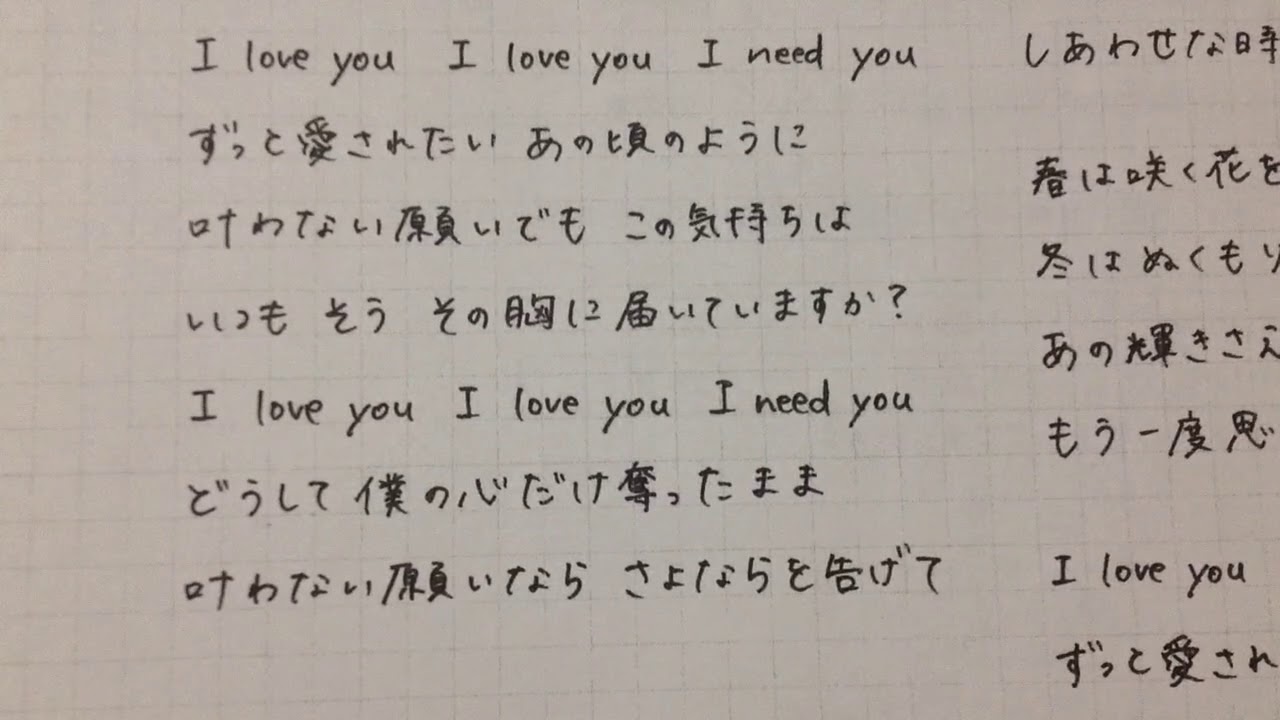 I love you I love you I need you
ずっと愛されたい あの頃のように
叶わない願いでも この気持ちは
いつも そう その胸に届いていますか?
I love you I love you I need you
どうして僕の心だけ奪ったまま
叶わない願いなら さよならを告げて
しあわせな時
春は咲く花を
冬はぬくもり
あの輝きさえ
もう一度思
I love you
ずっと愛され